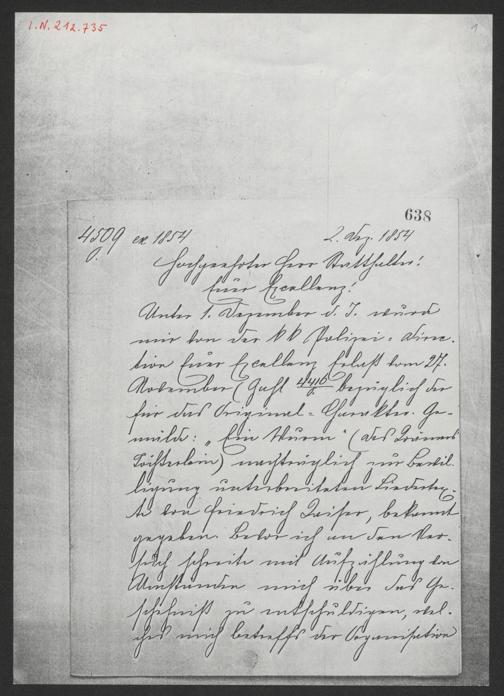 I.N. 212.735
1
638
4509 ex 1854
2. Dez. 1854
Hochgeehrter Herr Statthalter!
Euer Excellenz!
Unter 1. Dezember d. J. wurde
mir von der kk Polizei=Direc-
tion Euer Excellenz Erlaß vom 27.
November (Zahl 4410) bezüglich der
für das Original=Charakter-Ge-
mälde: „Ein Wurm" (des
Töchterlein) nachträglich zur Bewil-
ligung unterbreiteten Liedertex-
te von Friedrich Kaiser, bekannt
gegeben. Bevor ich an den Ver-
such schreite mit Aufzählung von
Umständen mich über das Ge-
schehniß zu entschuldigen, wel-
ches mich betreffs der Organisation